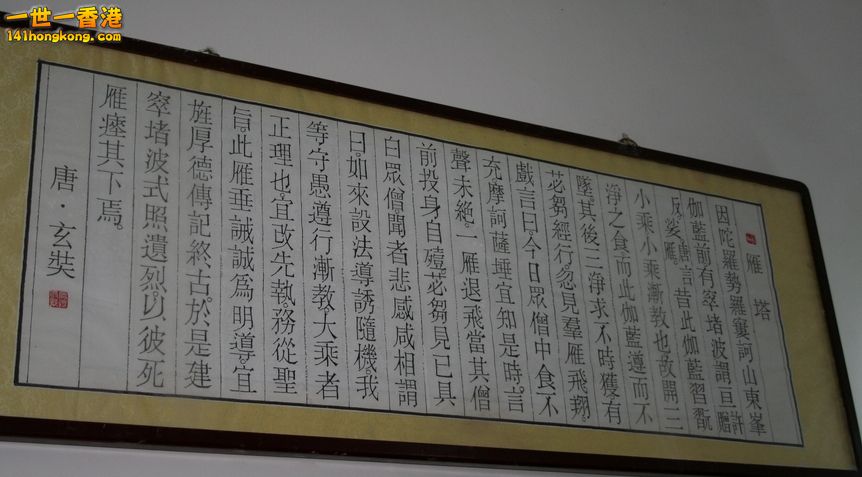 一世一香港
141hongkong.com
雁塔
因陀羅勢羅窶訶山東峯
伽藍前有窣堵波謂亘贈許
反娑。唐言雁。昔此伽藍習翫
小乘小乘漸教也。故開三
淨之食而此伽藍遵而不
墜。其後三淨求不時獲有
苾芻經行忽見羣雁飛翔。
戲言曰。今日眾僧中食不
充摩訶薩埵宜知是時。言
聲未絕。一雁退飛當其僧
前投身自殪。苾芻見已具
白眾僧聞者悲感咸相謂
曰。如來設法導誘隨機。我
等守愚遵行漸教。大乘者
正理也。宜改先執。務從聖
旨。此雁垂誡誠為明導。宜
旌厚德傳記終古。於是建
窣堵波式照遺烈。以彼死
雁瘞其下焉。
唐·玄奘